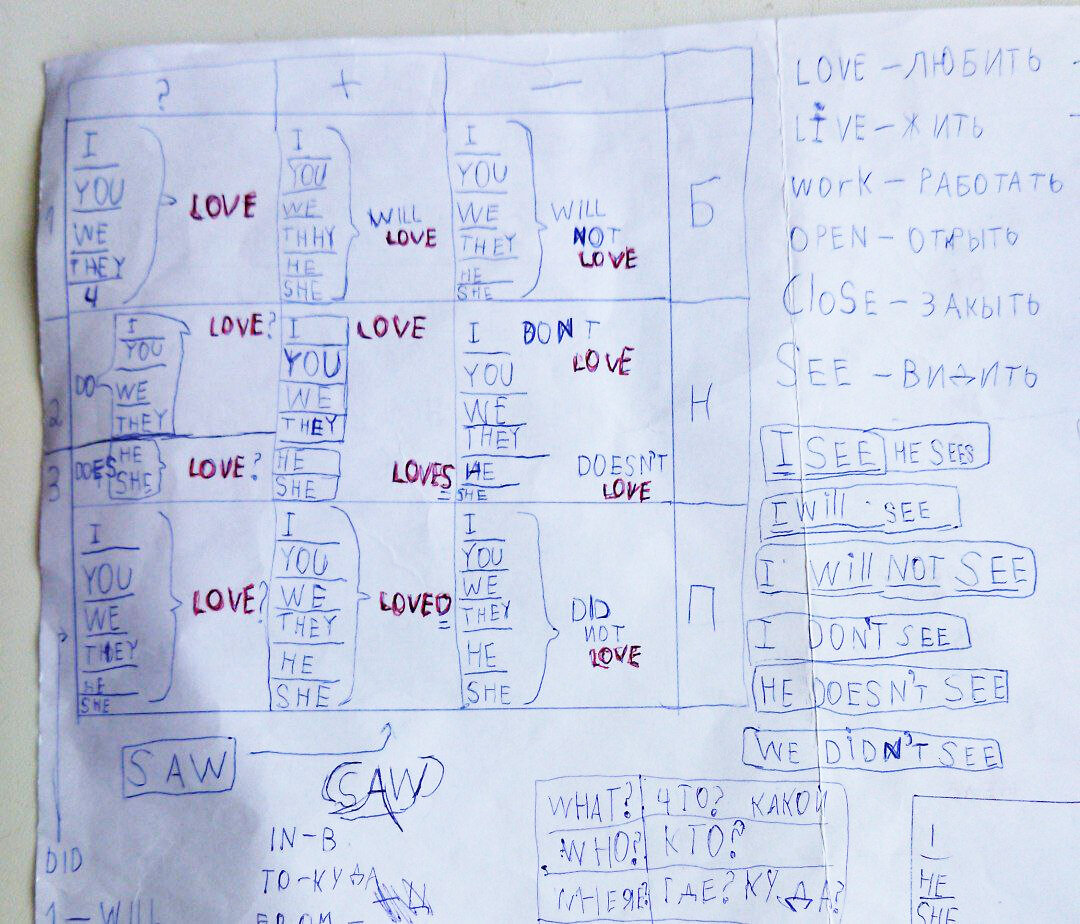 ? + —
1
I
YOU
WE
THEY
4
LOVE
I
YOU
WE
THHY
HE
SHE
WILL
LOVE
I
YOU
WE
THEY
HE
SHE
WILL
NOT
LOVE
Б
2
DO
I
YOU
WE
THEY
LOVE?
I
YOU
WE
THEY
LOVE
I
YOU
WE
THEY
DON'T
LOVE
Н
3
DOES
HE
SHE
LOVE?
HE
SHE
LOVES
HE
SHE
DOESN'T
LOVE
I
YOU
WE
THEY
HE
SHE
LOVE?
I
YOU
WE
THEY
HE
SHE
LOVED
I
YOU
WE
THEY
HE
SHE
DID
NOT
LOVE
П
SAW
SAW
DID
1 – WILL
IN – В
TO – КУДА
FROM –
LOVE – ЛЮБИТЬ
LIVE – ЖИТЬ
WORK – РАБОТАТЬ
OPEN – ОТКРЫТЬ
CLOSE – ЗАКЫТЬ
SEE – ВИДИТЬ
I SEE HE SEES
I Will SEE
I Will NOT SEE
I DON'T SEE
HE DOESN'T SEE
WE DIDN'T SEE
WHAT? ЧТО? КАКОЙ
WHO? КТО?
WHERE ГДЕ? КУДА?
I
HE
SHE